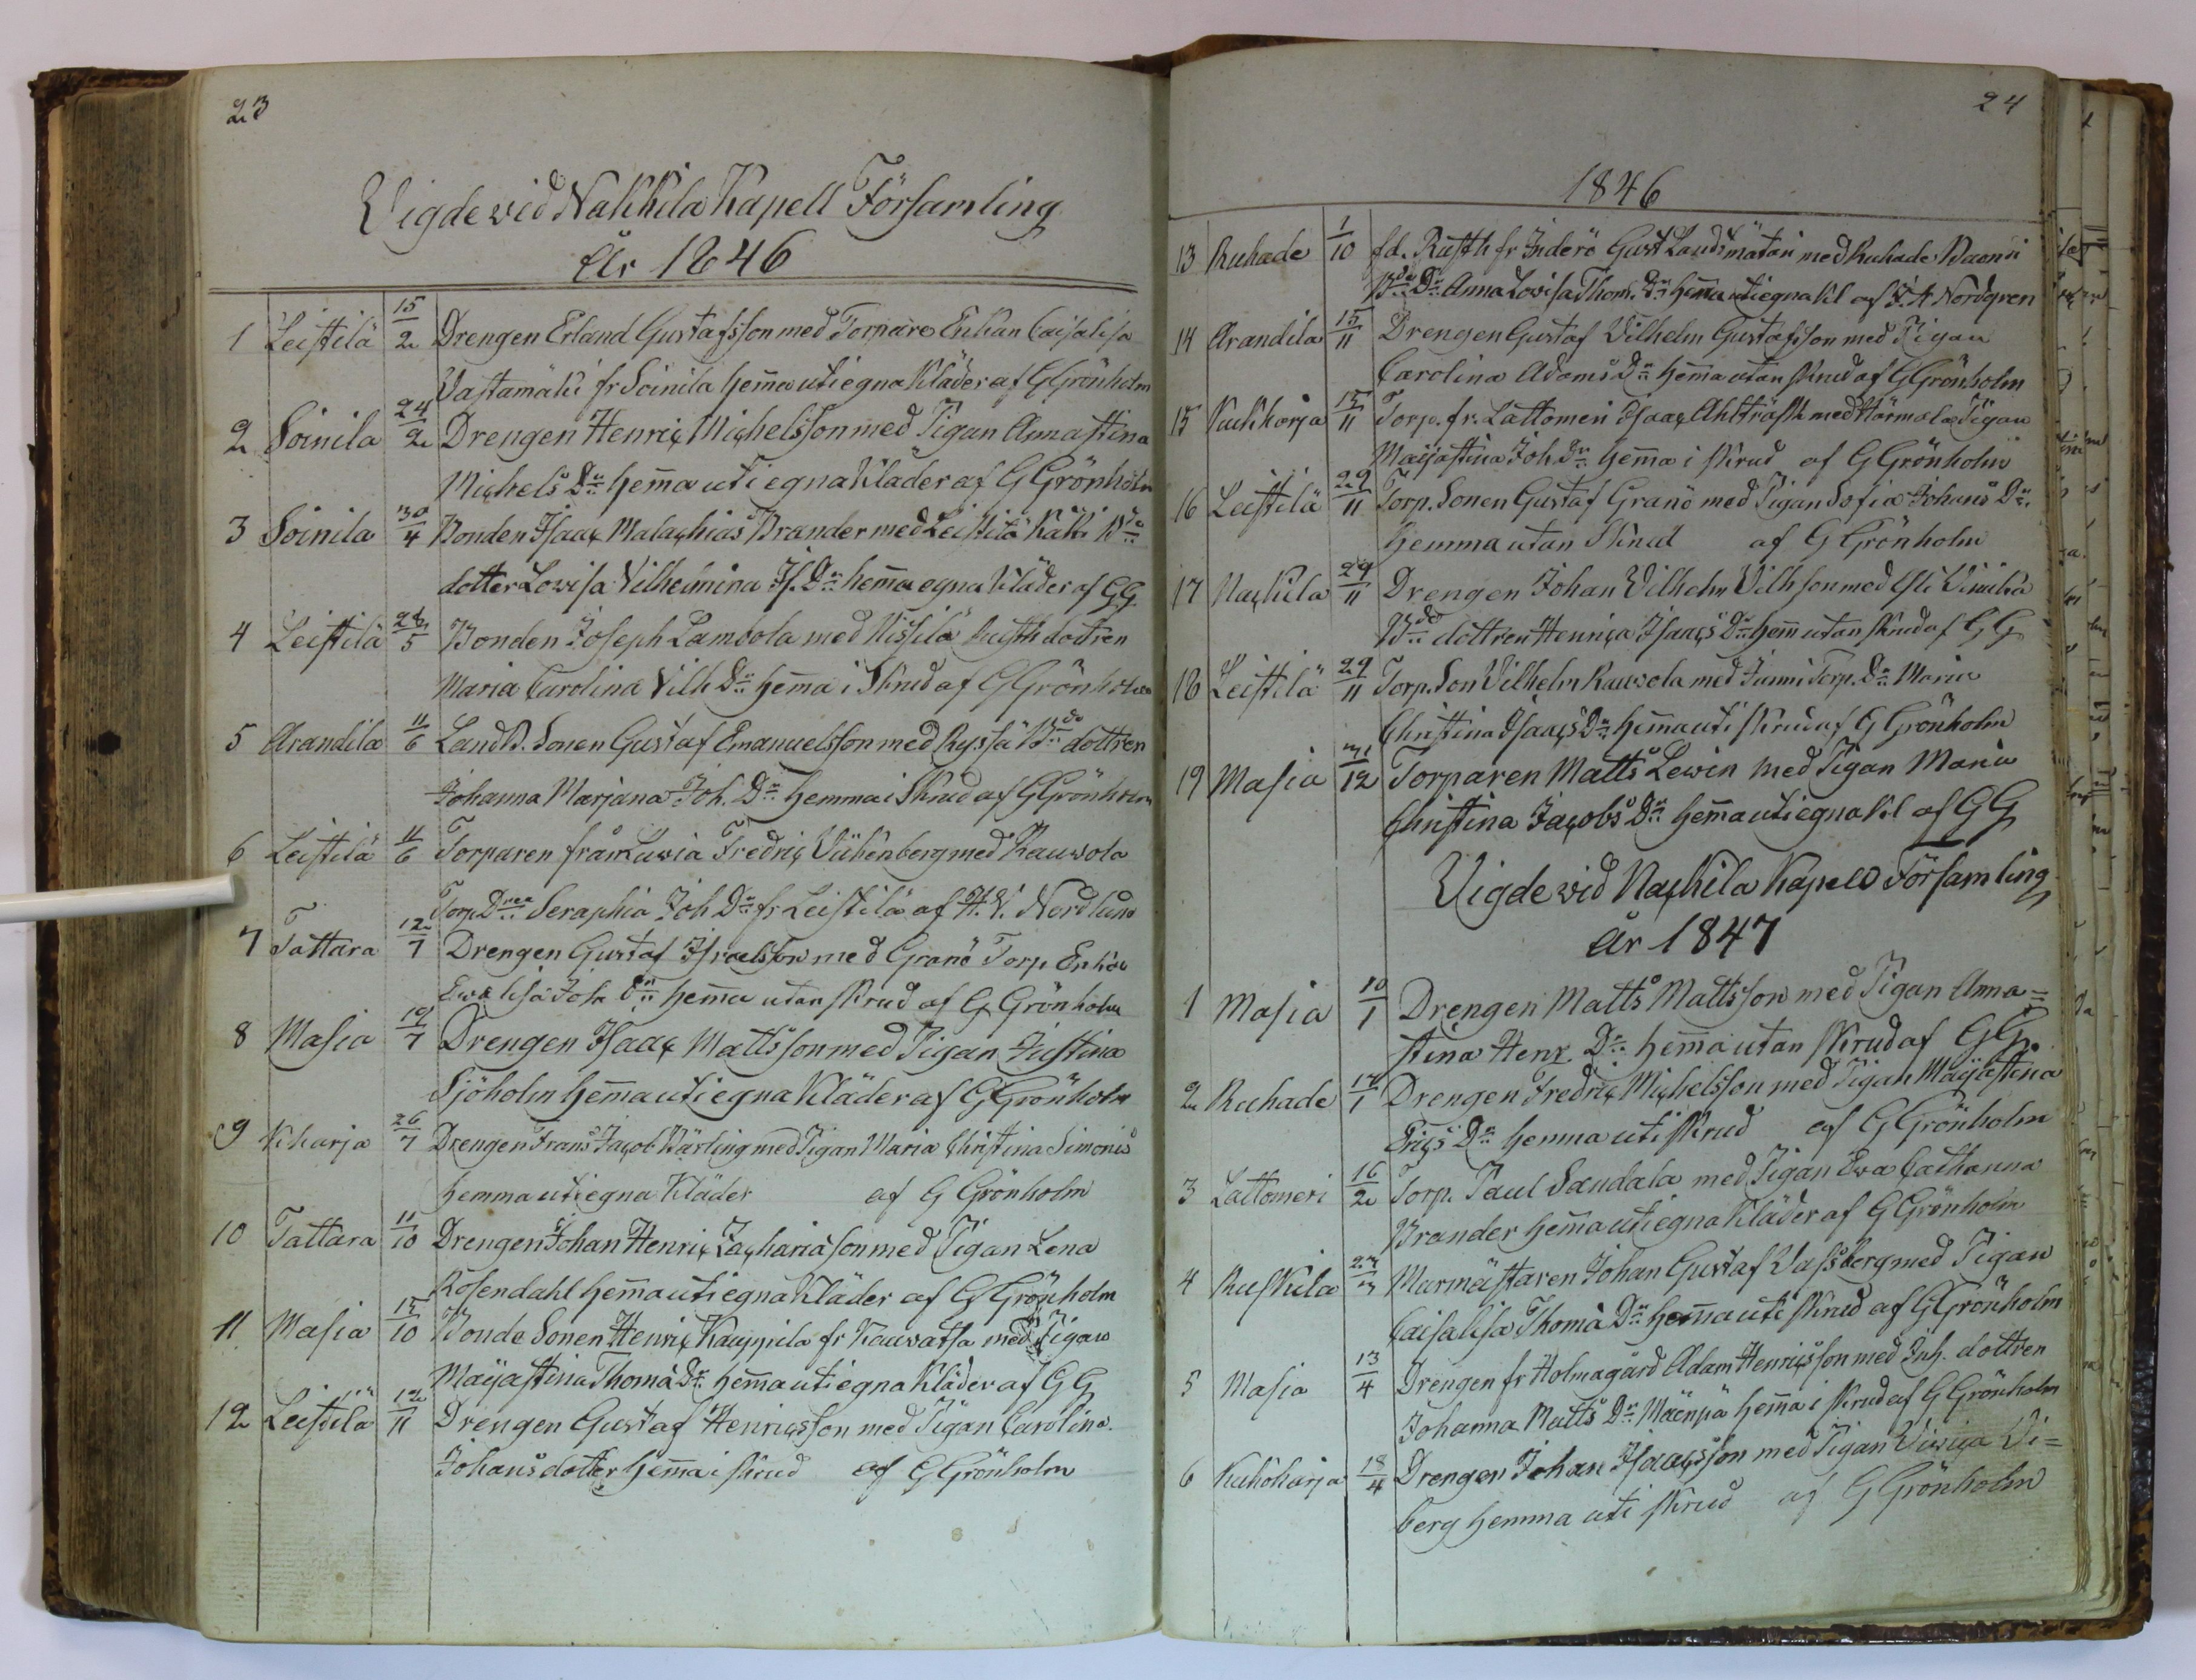 23
Vigde vid Nakkila Kapell Församling
År 1846
1 Leistilä 15/2 Drengen Erland Gustafsson med Torpare Enkan Caisalisa
Vastamäki fr Soinila hema uti egna Kläder af G Grönholm
2 Soinila 24/2 Drengen Henric Michelsson med Pigan Annastina
Michels Dr hema uti egna Kläder af G Grönholm
3 Soinila 30/4 Bonden Isaac Malachias Brander med Leistilä Käki Bde
dotter Lovisa Vilhelmina Is. Dr hema egna Kläder af GG
4 Leistilä 24/5 Bonden Joseph Lambola med Rusth dottren
Maria Carolina Vilh Dr hema i Skrud af G Grönholm
5 Arandila 11/6 Land B. Sonen Gustaf Emanuelsson med Ryssä Bde dottren
Johanna Marjana Joh. Dr hemma i Skrud af G Grönholm
6 Leistilä 11/6 Torparen från Luvia Fredric med Rauvola
Torp. Seraphia Joh Dr fr Leistilä af Nordlund
7 Tattara 12/7 Drengen Gustaf Israelsson med Granö Torp. Enkan
Evalisa Joh Dr hema utan skrud af G Grönholm
8 Masia 19/7 Drengen Isaac Mattsson med Pigan Justina
Sjöholm hema uti egna Kläder af G Grönholm
9 Kharja 26/7 Drengen Frans Jacob Värling med Pigan Maria Christina Simonis
hemma uti egna Kläder af G Grönholm
10 Tattara 11/10 Drengen Johan Henric Zachariasson med Pigan Lena
Rosendahl hema uti egna Kläder af G Grönholm
11 Masia 15/10 Bonde Sonen Henric Kauppila fr Kauvatsa med Pigan
Maijastina Thoma Dr hema uti egna Kläder af GG
12 Leistilä 12/11 Drengen Gustaf Henricsson med Pigan Carolina
Johansdotter hema i skrud af G Grönholm
24
1846
13 Ruhade 1/10 fd. Rusth fr Inderö Gust med Ruhade
Bde Dr Anna Lovisa Thom. Dr hema uti egna Kl af Nordgren
14 Arandila 15/11 Drengen Gustaf Vilhelm Gustafsson med Pigan
Carolina Adams Dr hema utan skrud af G Grönholm
15 15/11 Torp. fr. Lattomeri Isaac Ahlträsk med Härmälä Pigan
Maijastina Joh. Dr hema i skrud af G Grönholm
16 Leistilä 29/11 Torp. Sonen Gustaf Granö med Pigan Sofia Johans Dr.
hemma utan Skrud af G Grönholm
17 Nackila 29/11 Drengen Johan Vilhelm Vilhsson med
Bde dottren Henrica Isaacs Dr hem utan skrud af GG
18 Leistilä 29/11 Torp. Son Vilhelm Rauvola med Torp. Dr Maria
Christina Isaacs Dr hema uti skrud af G Grönholm
19 Masia 31/12 Torparen Matts Lewin med Pigan Maria
Christina Jacobs Dr hema uti egna Kl af GG
Vigde vid Nackila Kapell Församling
år 1847
1 Masia 10/1 Drengen Matts Mattsson med Pigan Anna=
stina Henr. Dr hema utan skrud af GG.
2 Ruhade 17/1 Drengen Fredric Michelsson med Pigan Maijastina
Erics Dr hemma uti skrud af G Grönholm
3 Lattomeri 16/2 Torp. Paul Sandala med Pigan Eva Catharina
Brander hema uti egna Kläder af G Grönholm
4 Ruskila 27/3 Murmästaren Johan Gustaf Vassberg med Pigan
Caisalisa Thoma Dr hema uti skrud af G Grönholm
5 Masia 13/4 Drengen fr Holmagård Adam Henricsson med Inh. dottren
Johanna Matts Dr Mäenpä hema i skrud af G Grönholm
6 18/4 Drengen Johan Isaacsson med Pigan Vi=
berg hemma uti skrud af G Grönholm